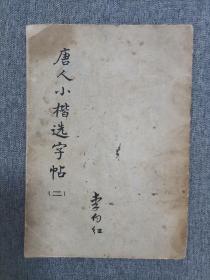 唐人小楷选字帖
（二）
李向红